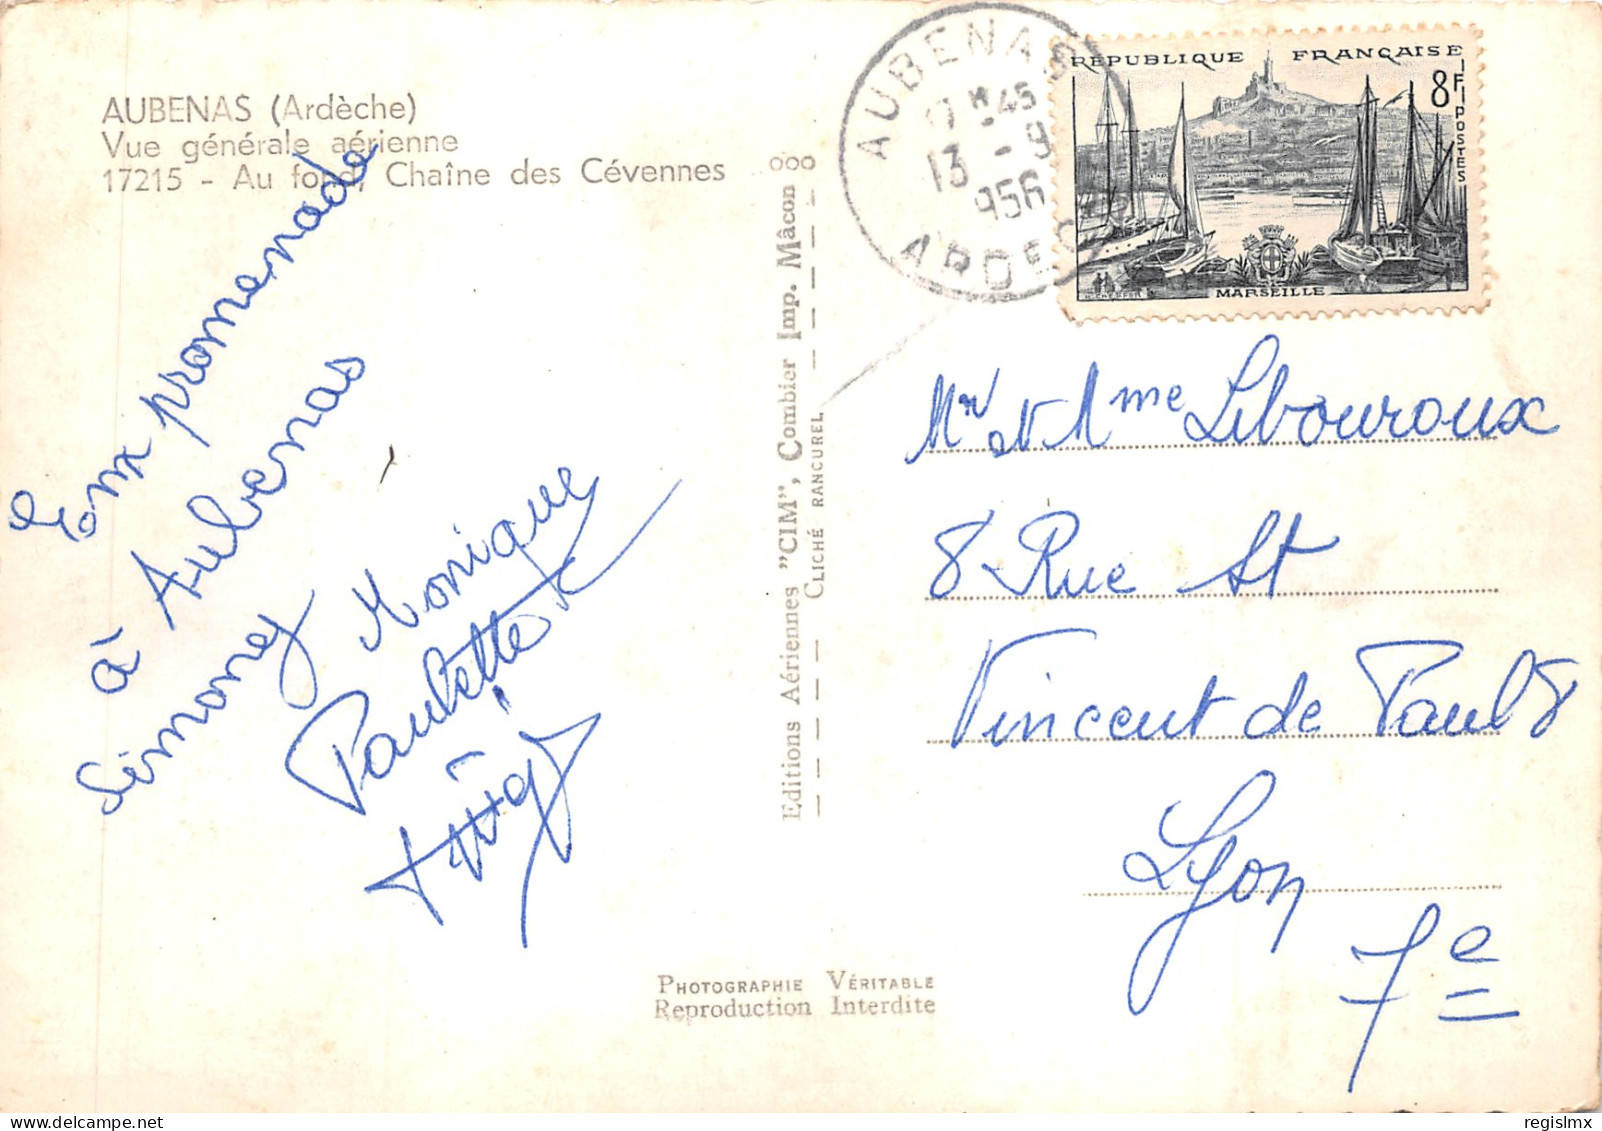 AUBENAS (Ardèche)
Vue générale aérienne
17215 - Au fond, Chaîne des Cévennes
En promenade
à Aubenas
Simone
Monique
Paulette
Editions Aériennes "CIM", Combier Imp. Mâcon
CLICHÉ RANCUREL
AUBENAS
45
13 - 9
956
ARDECHE
RÉPUBLIQUE FRANÇAISE
8F
POSTES
MARSEILLE
Mr et Mme Libouroux
8 Rue St
Vincent de Paul
Lyon
7e
PHOTOGRAPHIE VÉRITABLE
Reproduction Interdite
delcampe.net
regislmx